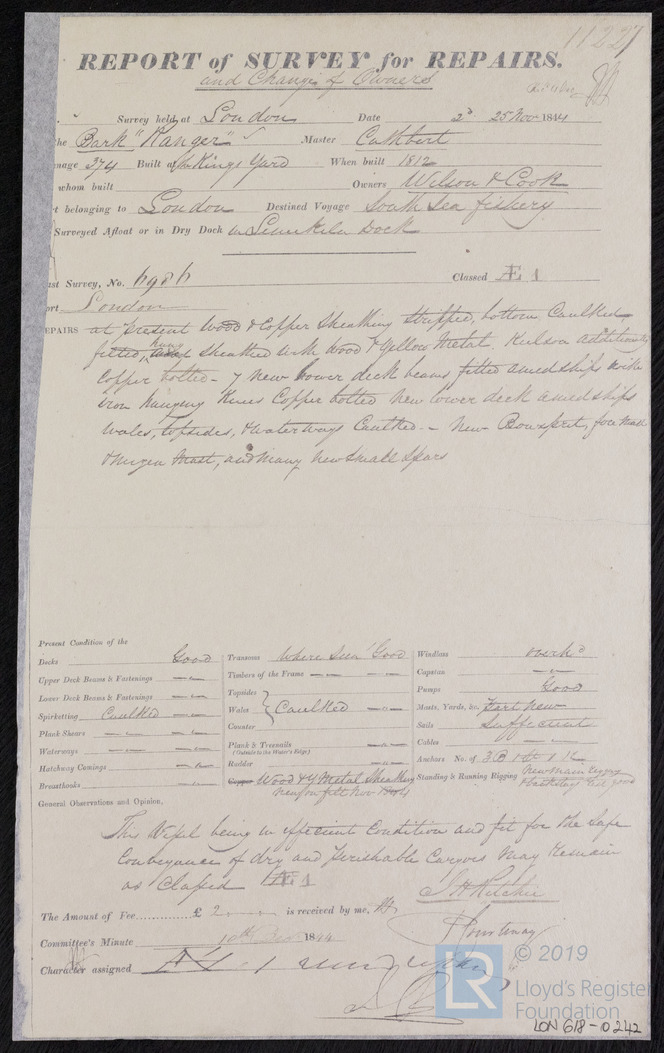 11227
REPORT of SURVEY for REPAIRS.
and Change of Owners
Survey held at London Date 2d 25 Nov 1844
he Bark "Ranger" Master Cuthbert
nage 374 Built at Kings Yard When built 1812
whom built Owners Wilson & Cook
t belonging to London Destined Voyage South Sea fishery
Surveyed Afloat or in Dry Dock in Limekiln Dock
ast Survey, No. 6986 Classed Æ 1
ort London
EPAIRS at Present Wood & Copper Sheathing stripped, bottom Caulked
felted, and sheathed with wood & Yellow Metal. Keelson additionally
Copper bolted - 7 new lower deck beams fitted amidships with
iron hanging Knees Copper bolted new lower deck amidships
Wales, topsides, & waterways Caulked. - New Bowsprit, fore Mast
& Mizen Mast, and many new Small Spars
Present Condition of the
Decks Good
Upper Deck Beams & Fastenings
Lower Deck Beams & Fastenings
Spirketting Caulked
Plank Shears
Waterways
Hatchway Comings
Breasthooks
Transoms Where Seen Good
Timbers of the Frame
Topsides
Wales Caulked
Counter
Plank & Treenails
(Outside to the Water's Edge)
Rudder
Copper Wood & Y Metal Sheathing
new on felt Nov 1844
Windlass overhd
Capstan
Pumps Good
Masts, Yards, &c. Part new
Sails Sufficient
Cables
Anchors No. of 3 B 1 St 1 K
Standing & Running Rigging New Main rigging
& backstays rest good
General Observations and Opinion,
This Vessel being in efficient Condition and fit for the Safe
Conveyance of dry and Perishable Cargoes May Remain
as Classed Æ 1
J H Ritchie
The Amount of Fee £ 2 is received by me,
Courtenay
Committee's Minute 10th Dec 1844
Character assigned
© 2019
LR
Lloyd's Register
Foundation
LON 618-0242